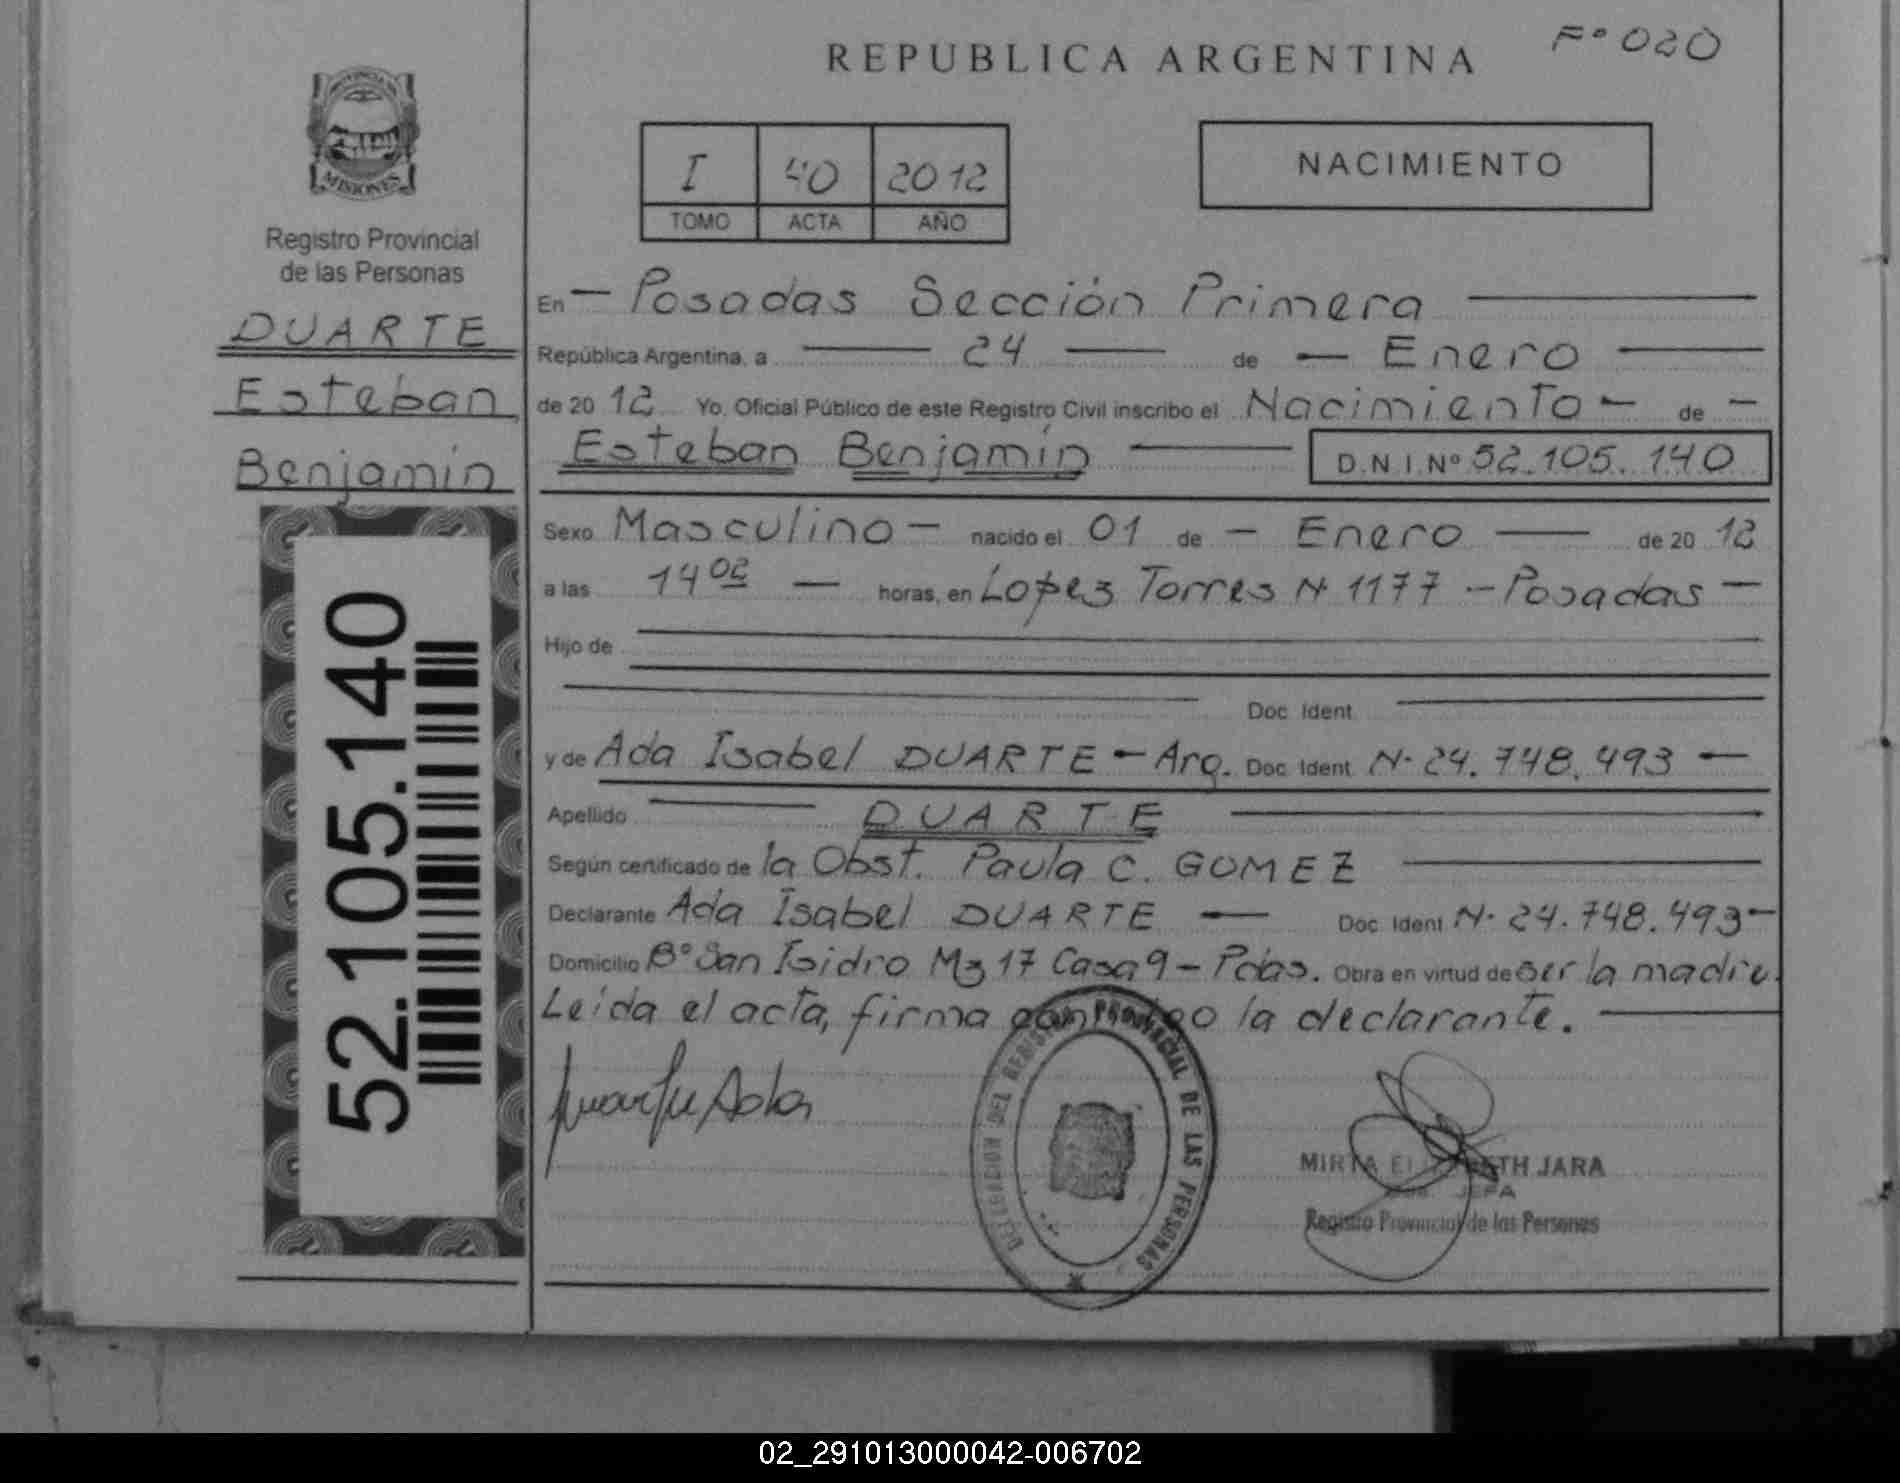 REPUBLICA ARGENTINA
Fº 020
PROVINCIA DE
MISIONES
Registro Provincial
de las Personas
DUARTE
Esteban
Benjamín
52.105.140
I 40 2012
TOMO ACTA AÑO
NACIMIENTO
En — Posadas Sección Primera —
República Argentina, a — 24 — de — Enero —
de 20 12 Yo, Oficial Público de este Registro Civil inscribo el Nacimiento — de —
Esteban Benjamín — D.N.I. Nº 52.105.140
Sexo Masculino — nacido el 01 de — Enero — de 20 12
a las 14 02 — horas, en Lopez Torres Nº 1177 — Posadas —
Hijo de —
— Doc. Ident. —
y de Ada Isabel DUARTE — Arg. Doc. Ident. Nº 24.748.493 —
Apellido — DUARTE —
Según certificado de la Obst. Paula C. GOMEZ —
Declarante Ada Isabel DUARTE — Doc. Ident. Nº 24.748.493 —
Domicilio Bº San Isidro Mz 17 Casa 9 — Pdas. Obra en virtud de ser la madre.
Leída el acta, firma conmigo la declarante. —
Duarte Ada
DELEGACION DEL REGISTRO PROVINCIAL DE LAS PERSONAS
MIRTA ELIZABETH JARA
JEFA
Registro Provincial de las Personas
02_291013000042-006702